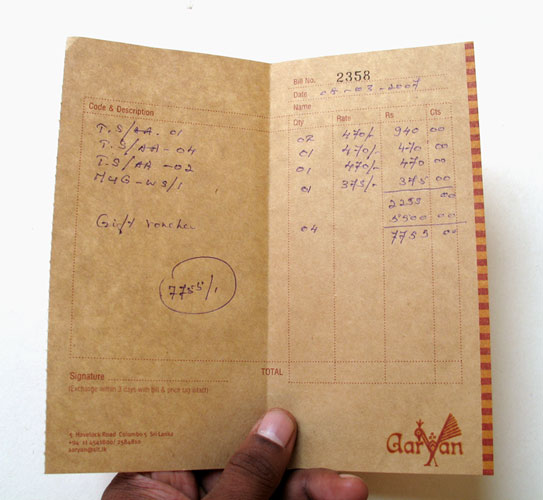 Bill No. 2358
Date 05-03-2007
Name
Code & Description Qty Rate Rs Cts
T.S/AA-01 02 470/- 940 00
T.S/AA-04 01 470/- 470 00
T.S/AA-02 01 470/- 470 00
MUG-WS/1 01 375/- 375 00
2255 00
Gift voucher 04 5500 00
7755 00
7755/1
Signature TOTAL
(Exchange within 3 days with Bill & price tag intact)
5, Havelock Road Colombo 5 Sri Lanka
aaryan@slt.lk
Aaryan